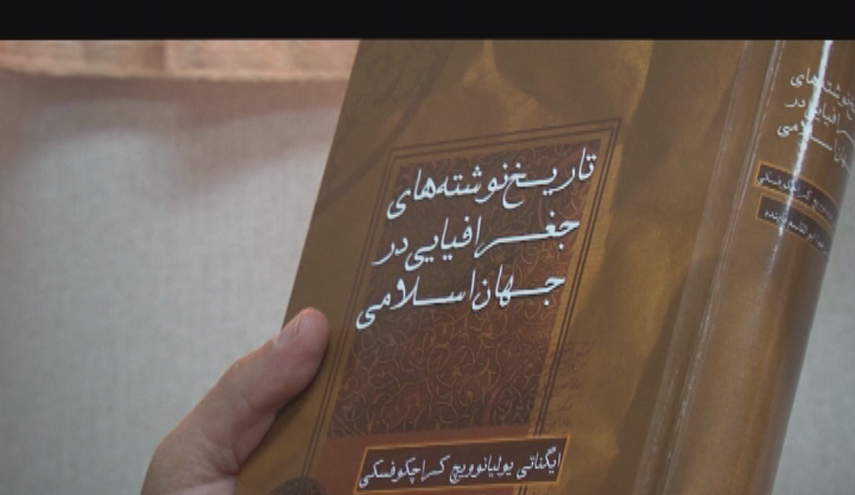 تاریخ نوشته‌های
جغرافیایی در
جهان اسلامی
ایگناتی یولیانوویچ کراچکوفسکی
نوشته‌های
جغرافیایی در
جهان اسلامی
کراچکوفسکی
ابوالقاسم پاینده